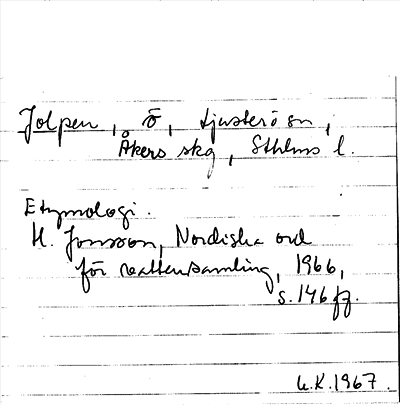 Jolpen, ö, Ljusterö sn,
Åkers skg, Sthlms l.
Etymologi.
H. Jonsson, Nordiska ord
för vattensamling, 1966,
s. 146 ff.
U.K. 1967.